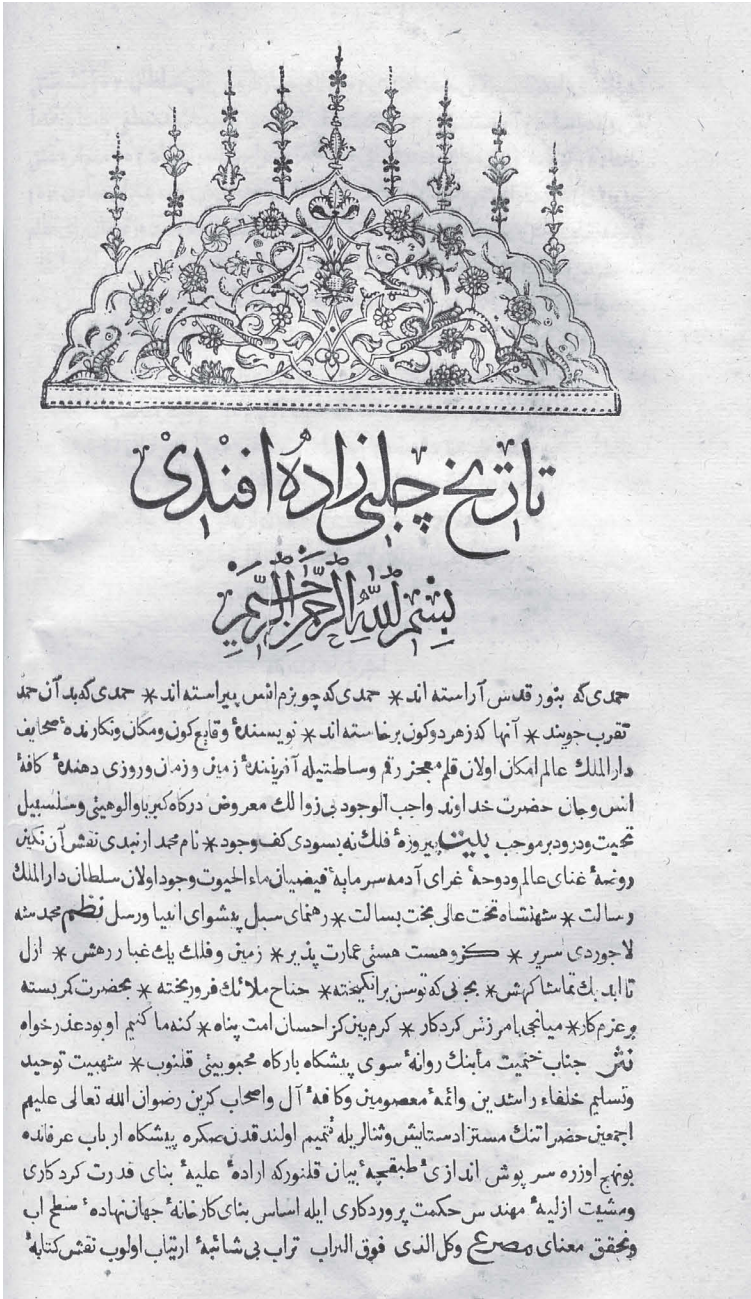 تاريخ چلبى زاده افندى
بسم الله الرحمن الرحيم
حمدى كه بنور قدس آراسته اند * حمدى كه چو بزم انس پيراسته اند * حمدى كه بدآن حمد
تقرب جويند * آنها كه زهر دو كون برخاسته اند * نويسندۀ وقايع كون ومكان ونكارندۀ صحايف
دار الملك عالم امكان اولان قلم معجز رقم وساطتيله آفرينندۀ زمين وزمان وروزى دهندۀ كافۀ
انس وجان حضرت خداوند واجب الوجود بى زوالك معروض دركاه كبريا والوهيتى وسلسبيل
تحيت ودرود بر موجب بيت پيروزۀ فلك نه بسودى كف وجود * نام محمد ار نبدى نقش آن نكين
روضۀ غناى عالم ودوحۀ غراى آدمه سرمايۀ فيضيان ماء الحيوت وجود اولان سلطان دار الملك
رسالت * شهنشاه تخت عالى بخت بسالت * رهنماى سبل پيشواى انبيا ورسل نظم محمد شه
لاجوردى سرير * كزو هست هستى عمارت پذير * زمين وفلك يك غبار رهش * ازل
تا ابد يك تماشا كهش * بجايى كه توسن برانكيخته * جناح ملائك فرو ريخته * بحضرت كمر بسته
بر عزم كار * ميانجى بامرزش كردكار * كرم بين كز احسان امت پناه * كنه ما كنيم او بود عذر خواه
نثر جناب ختميت مأبنك روانۀ سوى پيشكاه باركاه محبوبيتى قلنوب * توحيد
وتسليم خلفاء راشدين وائمۀ معصومين وكافۀ آل واصحاب كزين رضوان الله تعالى عليهم
اجمعين حضراتنك مستزاد ستايش وثنالريله تتميم اولندقدن صكره پيشكاه ارباب عرفانده
بو نهج اوزره سرپوش اندازئ طبقچۀ بيان قلنور كه ارادۀ عليۀ بناى قدرت كردكارى
ومشيت ازليۀ مهندس حكمت پروردكارى ايله اساس بناى كارخانۀ جهان نهادۀ سطح آب
وتحقق معناى مصرع وكل الذى فوق التراب تراب بى شائبۀ ارتياب اولوب نقش كتابۀ